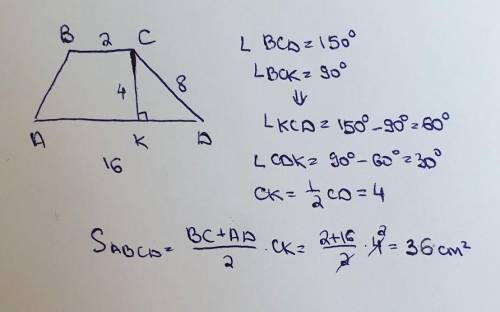 B 2 C
4 8
A K D
16
∟ BCD = 150°
∟BCK = 90°
⇓
∟KCD = 150° - 90° = 60°
∟CDK = 90° - 60° = 30°
CK = 1/2 CD = 4
S ABCD = BC+AD/2 · CK = 2+16/2 · 4² = 36 cm²